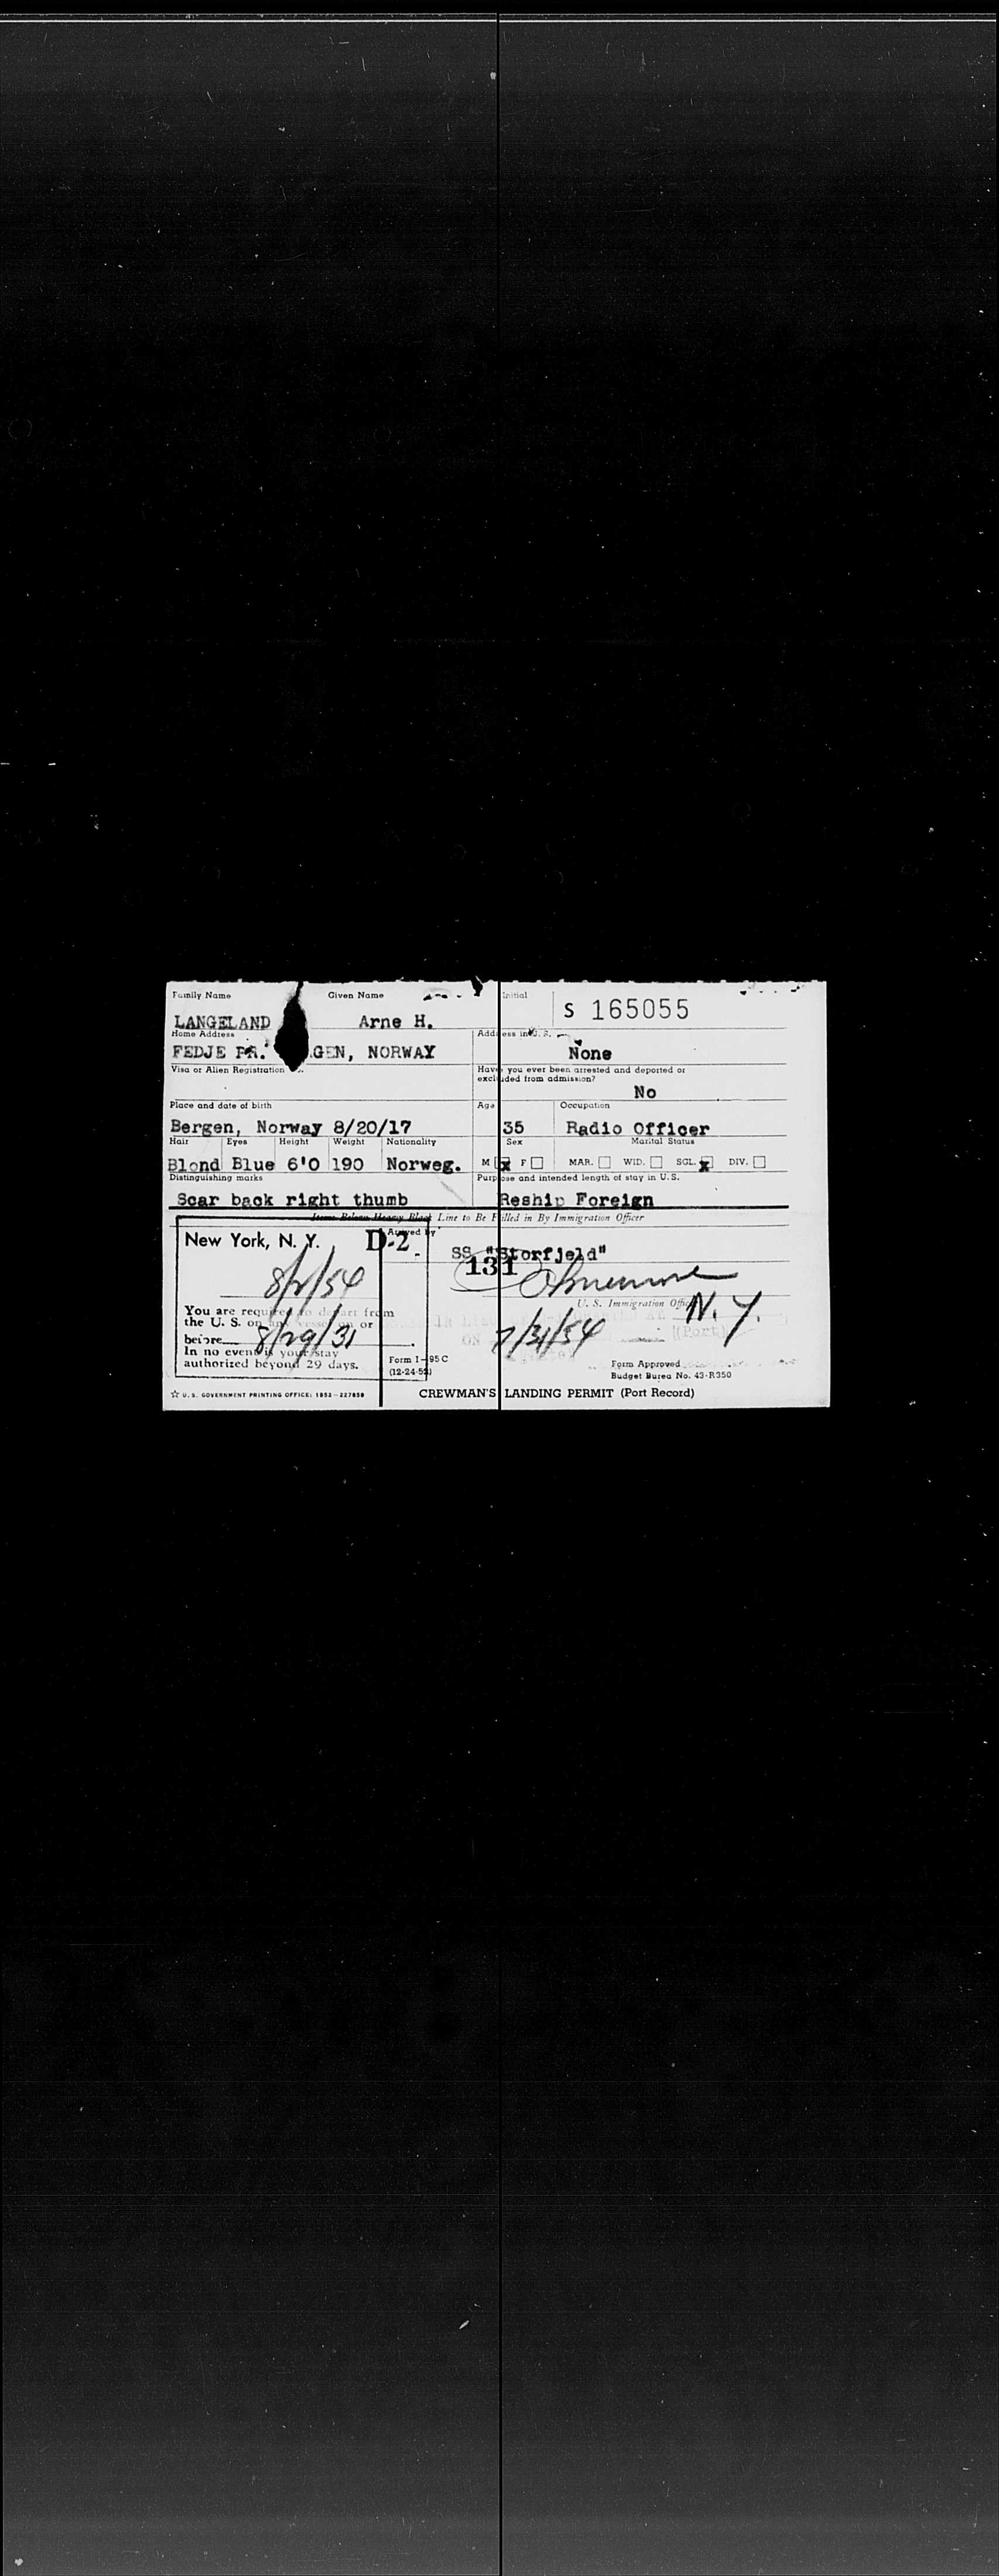 Family Name Given Name Initial
S 165055
LANGELAND Arne H.
Home Address Address in U. S.
FEDJE PR. GEN, NORWAY None
Visa or Alien Registration Have you ever been arrested and deported or
excluded from admission?
No
Place and date of birth Age Occupation
Bergen, Norway 8/20/17 35 Radio Officer
Hair Eyes Height Weight Nationality Sex Marital Status
Blond Blue 6'0 190 Norweg. M x F MAR. WID. SGL. x DIV.
Distinguishing marks Purpose and intended length of stay in U.S.
Scar back right thumb Reship Foreign
Items Below Heavy Black Line to Be Filled in By Immigration Officer
New York, N. Y. D-2 Arrived by
SS "Storfjeld"
131
8/2/54
U. S. Immigration Officer
You are required to depart from
the U. S. on any vessel on or
before 8/29/31
7/31/54 N. Y.
(Port)
In no event is your stay
authorized beyond 29 days.
Form I-95C
(12-24-52)
Form Approved
Budget Bureau No. 43-R350
☆ U. S. GOVERNMENT PRINTING OFFICE: 1952—227850
CREWMAN'S LANDING PERMIT (Port Record)